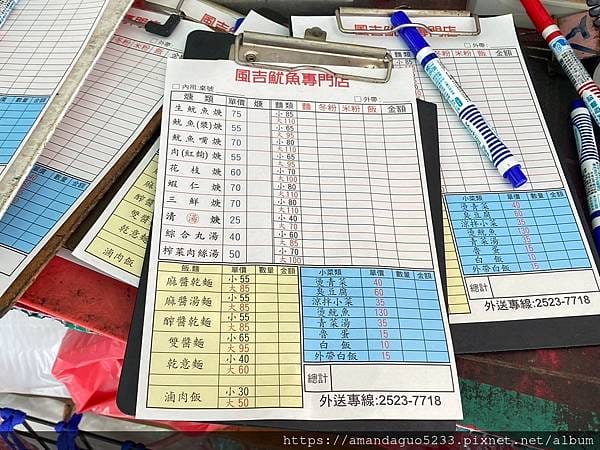 風吉魷魚專門店
□內用:桌號 □外帶:
羹類 單價 羹 麵類 麵 冬粉 米粉 飯 金額
生魷魚羹 75 小85 大110
魷魚(漿)羹 55 小65 大95
魷魚嘴羹 70 小80 大110
肉(紅麴)羹 55 小65 大95
花枝羹 60 小70 大100
蝦仁羹 70 小80 大110
三鮮羹 70 小80 大110
清湯羹 25 小40 大70
綜合丸湯 40 小60 大85
榨菜肉絲湯 50 小70 大100
飯麵 單價 數量 金額
麻醬乾麵 小55 大85
麻醬湯麵 小55 大85
醡醬乾麵 小55 大85
雙醬麵 小65 大95
乾意麵 小40 大60
滷肉飯 小30 大50
小菜類 單價 數量 金額
燙青菜 40
臭豆腐 60
涼拌小菜 35
燙魷魚 130
青菜湯 35
魯蛋 15
白飯 10
外帶白飯 15
總計
外送專線:2523-7718
外送專線:2523-7718
https://amandaguo5233.pixnet.net/album